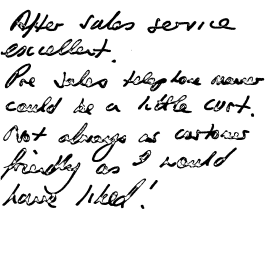 After sales service
excellent.
Pre sales telephone manner
could be a little curt.
Not always as customer
friendly as I would
have liked!